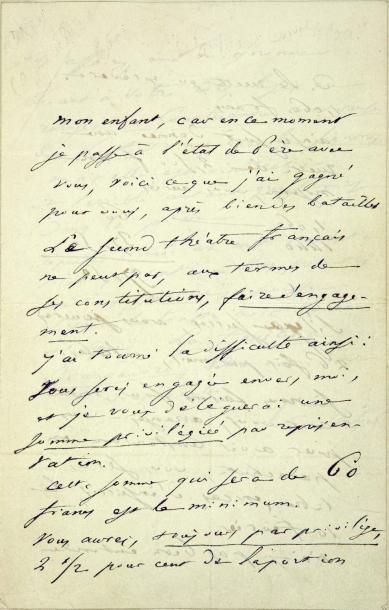 mon enfant, car en ce moment
je passe à l'état de Père avec
vous, voici ce que j'ai gagné
pour vous, après bien des batailles
Le second théâtre français
ne peut pas, aux termes de
ses constitutions, faire d'engage-
ment.
j'ai tourné la difficulté ainsi:
Vous serez engagée envers moi,
et je vous deleguerai une
somme privilégiée par représen-
tation.
Cette somme qui sera de 60
francs est le minimum.
Vous aurez, toujours par privilège,
2 1/2 pour cent de la portion